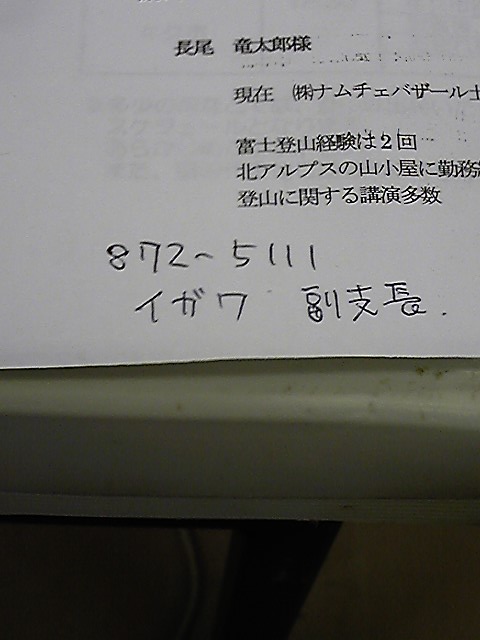 長尾 竜太郎様
現在 ㈱ナムチェバザール
富士登山経験は2回
北アルプスの山小屋に勤務
登山に関する講演多数
872~5111
イガワ 副支長.